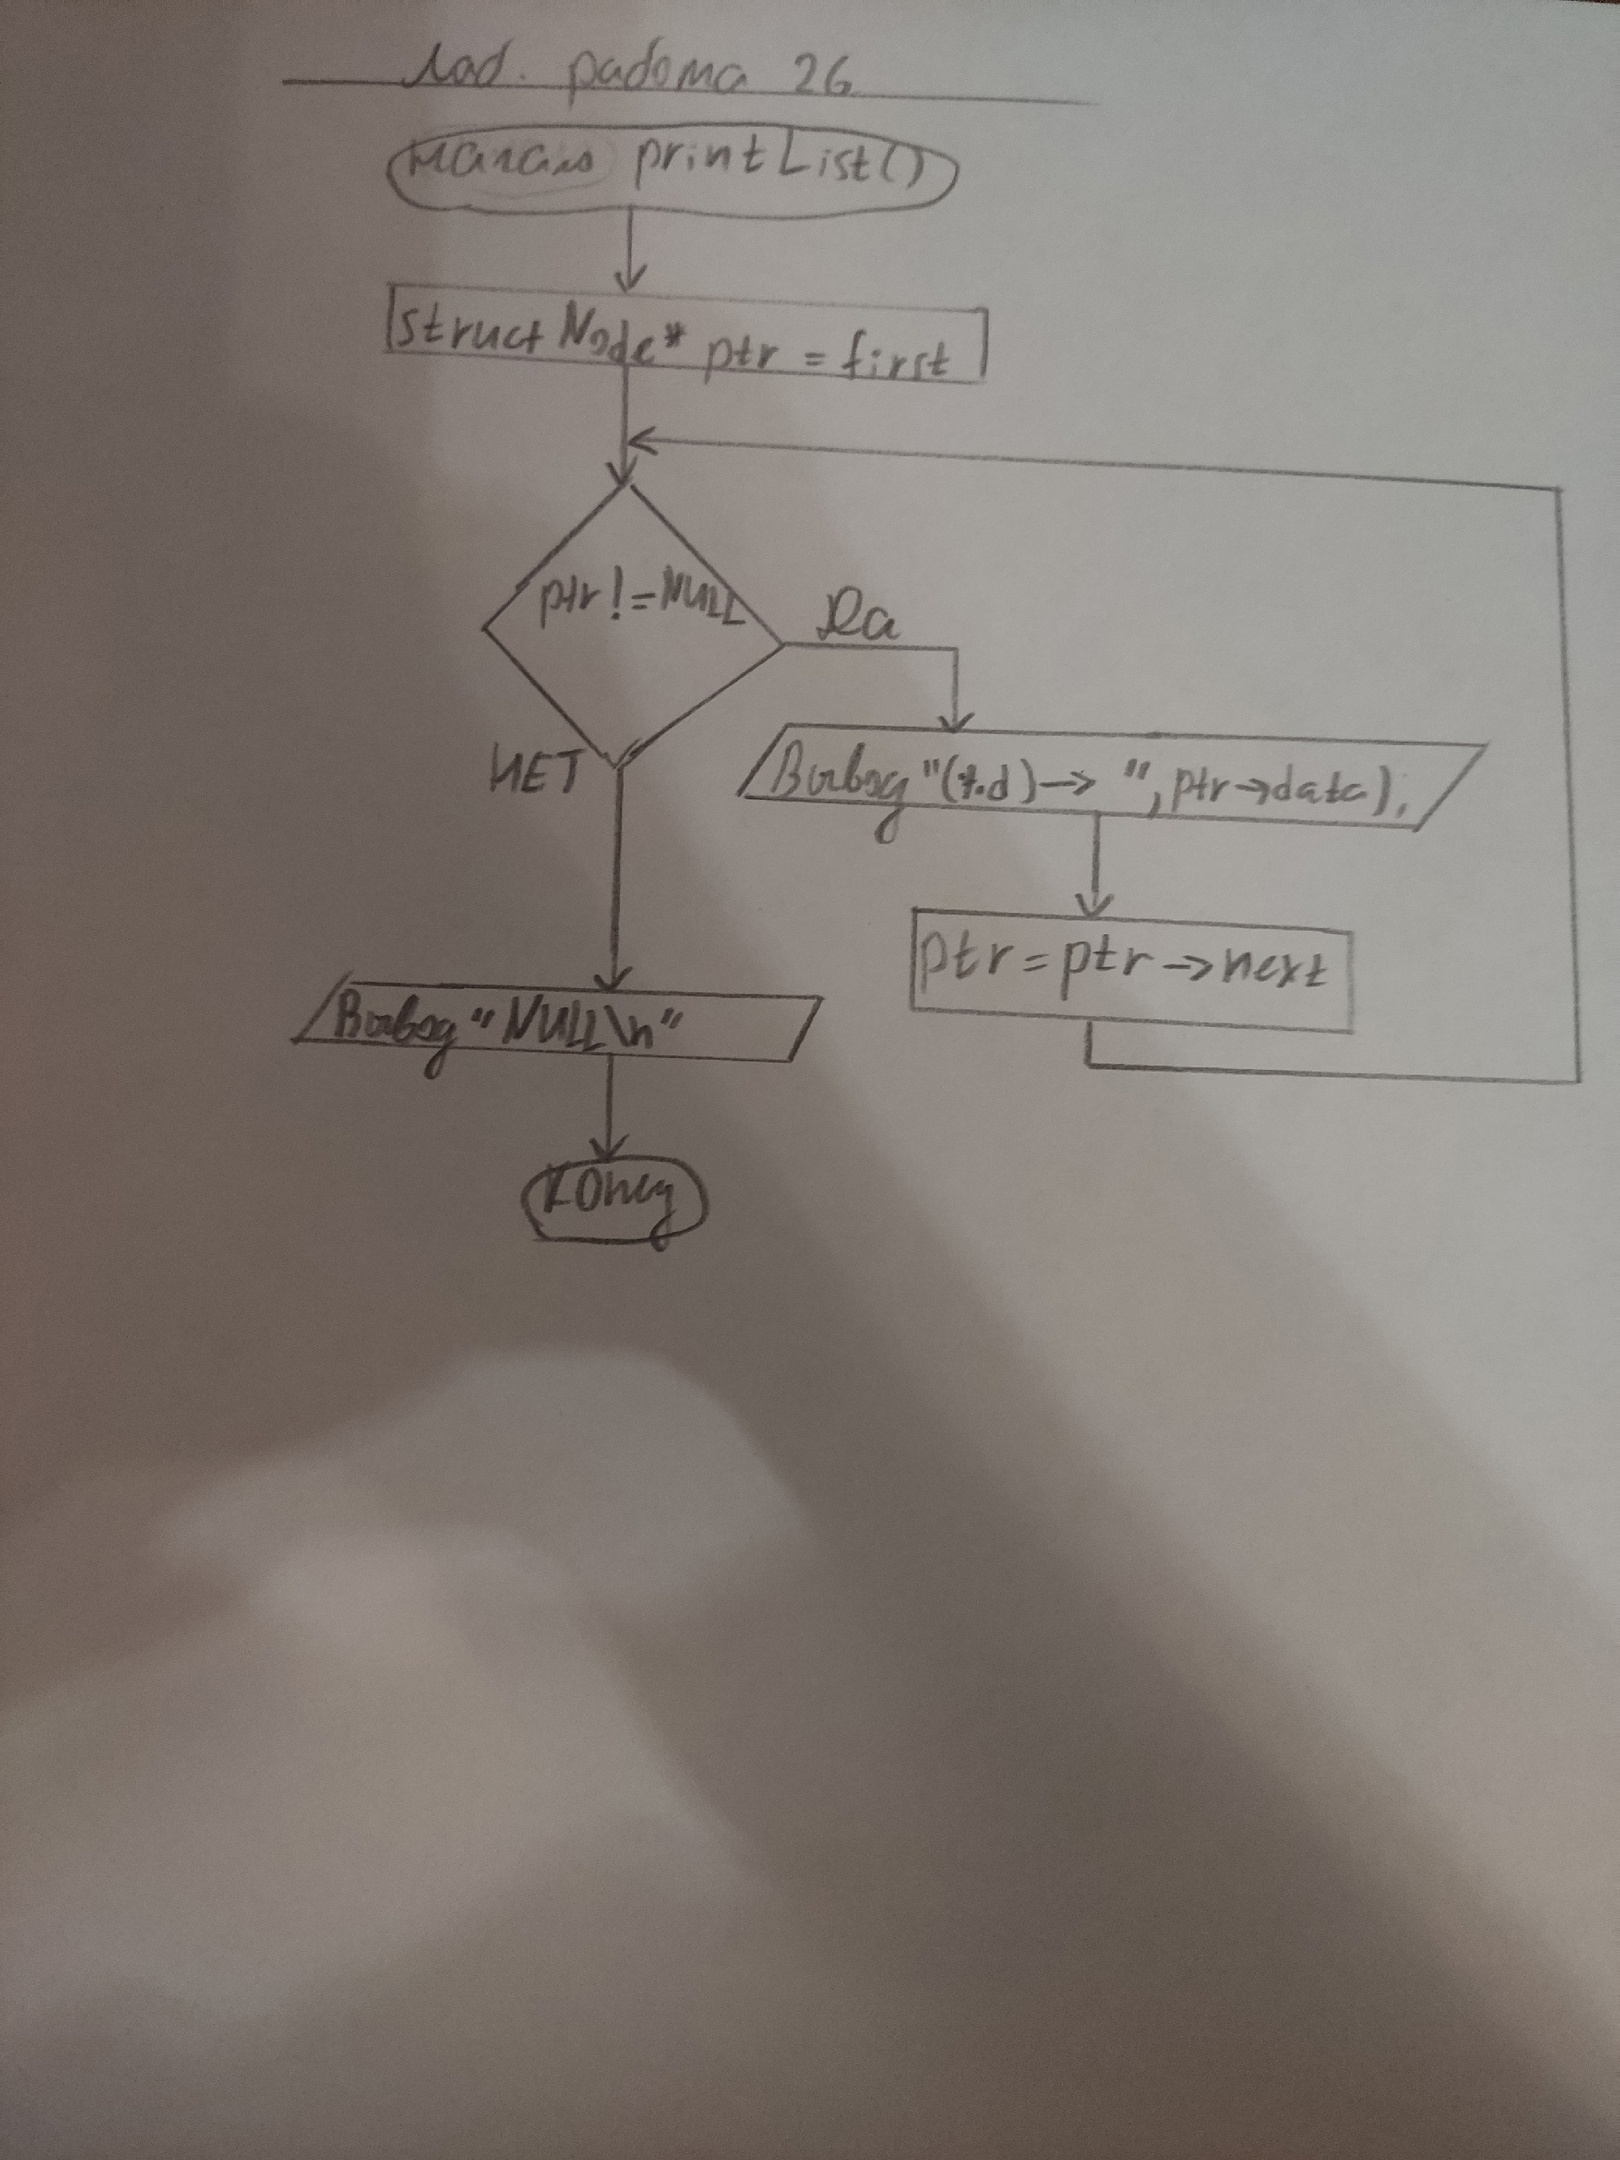 Лаб. работа 26
Начало printList()
struct Node* ptr = first
ptr != NULL
Да
НЕТ
Вывод "(%d)-> ", ptr->data).
ptr = ptr -> next
Вывод "NULL\n"
Конец